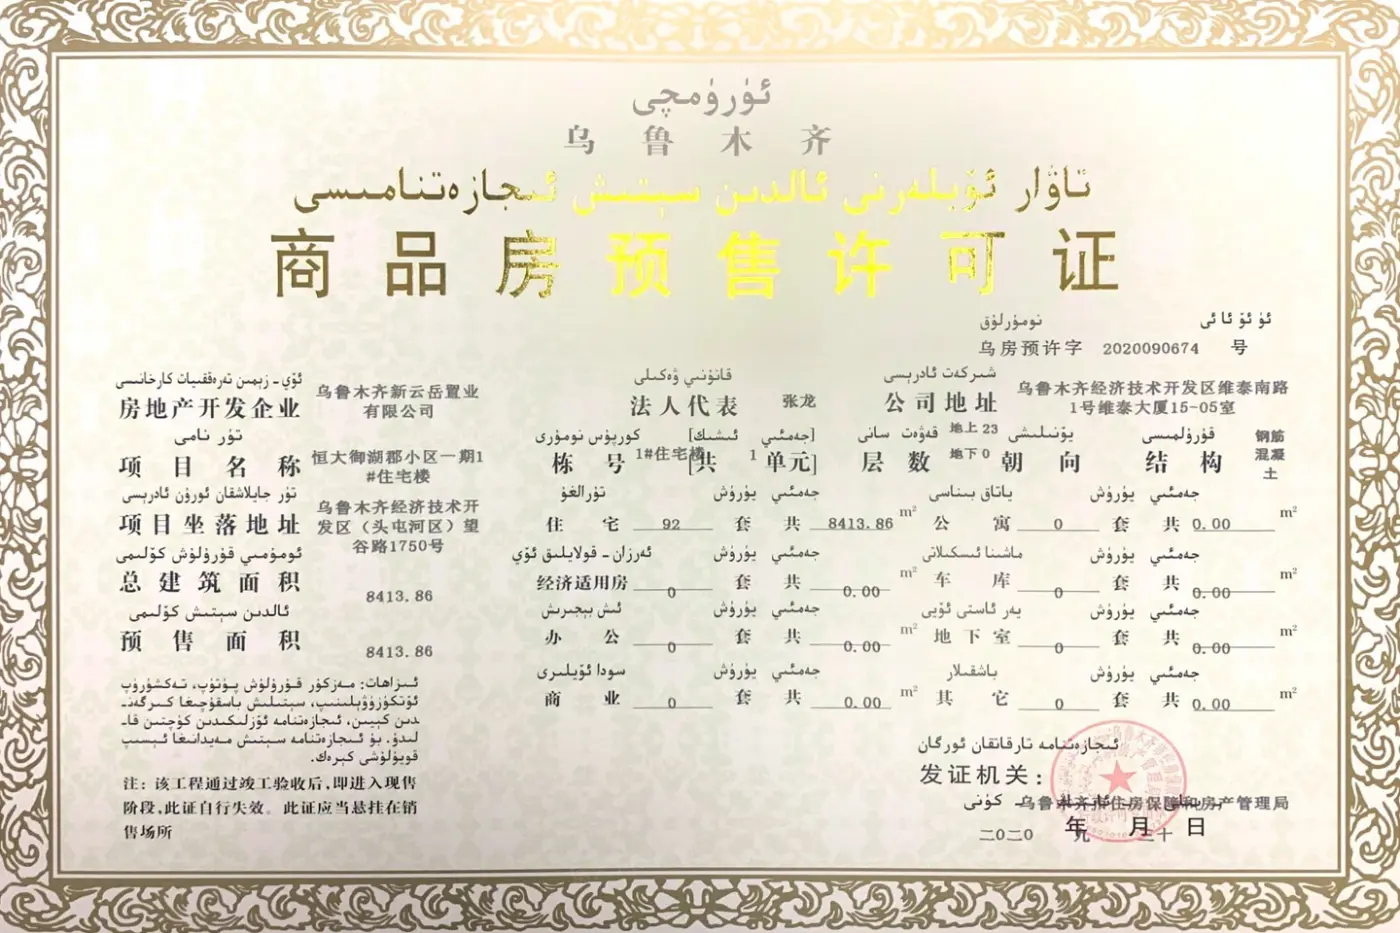 ئۈرۈمچى
乌鲁木齐
تاۋار ئۆيلەرنى ئالدىن سېتىش ئىجازەتنامىسى
商品房预售许可证
نومۇرلۇق ئۈ ئۆ ئا ئى
乌房预许字 2020090674 号
ئۆي - زېمىن تەرەققىيات كارخانىسى
房地产开发企业 乌鲁木齐新云岳置业有限公司
قانۇنىي ۋەكىلى
法人代表 张龙
شىركەت ئادرېسى
公司地址 乌鲁木齐经济技术开发区维泰南路1号维泰大厦15-05室
تۈر نامى
项目名称 恒大御湖郡小区一期1#住宅楼
كورپۇس نومۇرى [جەمئىي ئىشىك]
栋号 1#住宅楼 [共 1 单元]
قەۋەت سانى
层数 地上 23 地下 0
يۆنىلىشى
朝向
قۇرۇلمىسى
结构 钢筋混凝土
تۈر جايلاشقان ئورۇن ئادرېسى
项目坐落地址 乌鲁木齐经济技术开发区（头屯河区）望谷路1750号
ئومۇمىي قۇرۇلۇش كۆلىمى
总建筑面积 8413.86
ئالدىن سېتىش كۆلىمى
预售面积 8413.86
تۇرالغۇ يۈرۈش جەمئىي
住宅 92 套 共 8413.86 m²
ياتاق بىناسى يۈرۈش جەمئىي
公寓 0 套 共 0.00 m²
ئەرزان - قولايلىق ئۆي يۈرۈش جەمئىي
经济适用房 0 套 共 0.00 m²
ماشىنا ئىسكىلاتى يۈرۈش جەمئىي
车库 0 套 共 0.00 m²
ئىش بېجىرىش يۈرۈش جەمئىي
办公 0 套 共 0.00 m²
يەر ئاستى ئۆيى يۈرۈش جەمئىي
地下室 0 套 共 0.00 m²
سودا ئۆيلىرى يۈرۈش جەمئىي
商业 0 套 共 0.00 m²
باشقىلار يۈرۈش جەمئىي
其它 0 套 共 0.00 m²
ئىزاھات: مەزكۇر قۇرۇلۇش پۈتۈپ، تەكشۈرۈپ
ئۆتكۈزۈۋېلىنىپ، سېتىلىش باسقۇچىغا كىرگەن-
دىن كېيىن، ئىجازەتنامە ئۆزلىكىدىن كۈچتىن قا-
لىدۇ. بۇ ئىجازەتنامە سېتىش مەيدانىغا ئېسىپ
قويۇلۇشى كېرەك.
注：该工程通过竣工验收后，即进入现售
阶段，此证自行失效。此证应当悬挂在销
售场所
ئىجازەتنامە تارقاتقان ئورگان
发证机关：
乌鲁木齐市住房保障和房产管理局
كۈنى
二〇二〇 年 九 月 三十 日